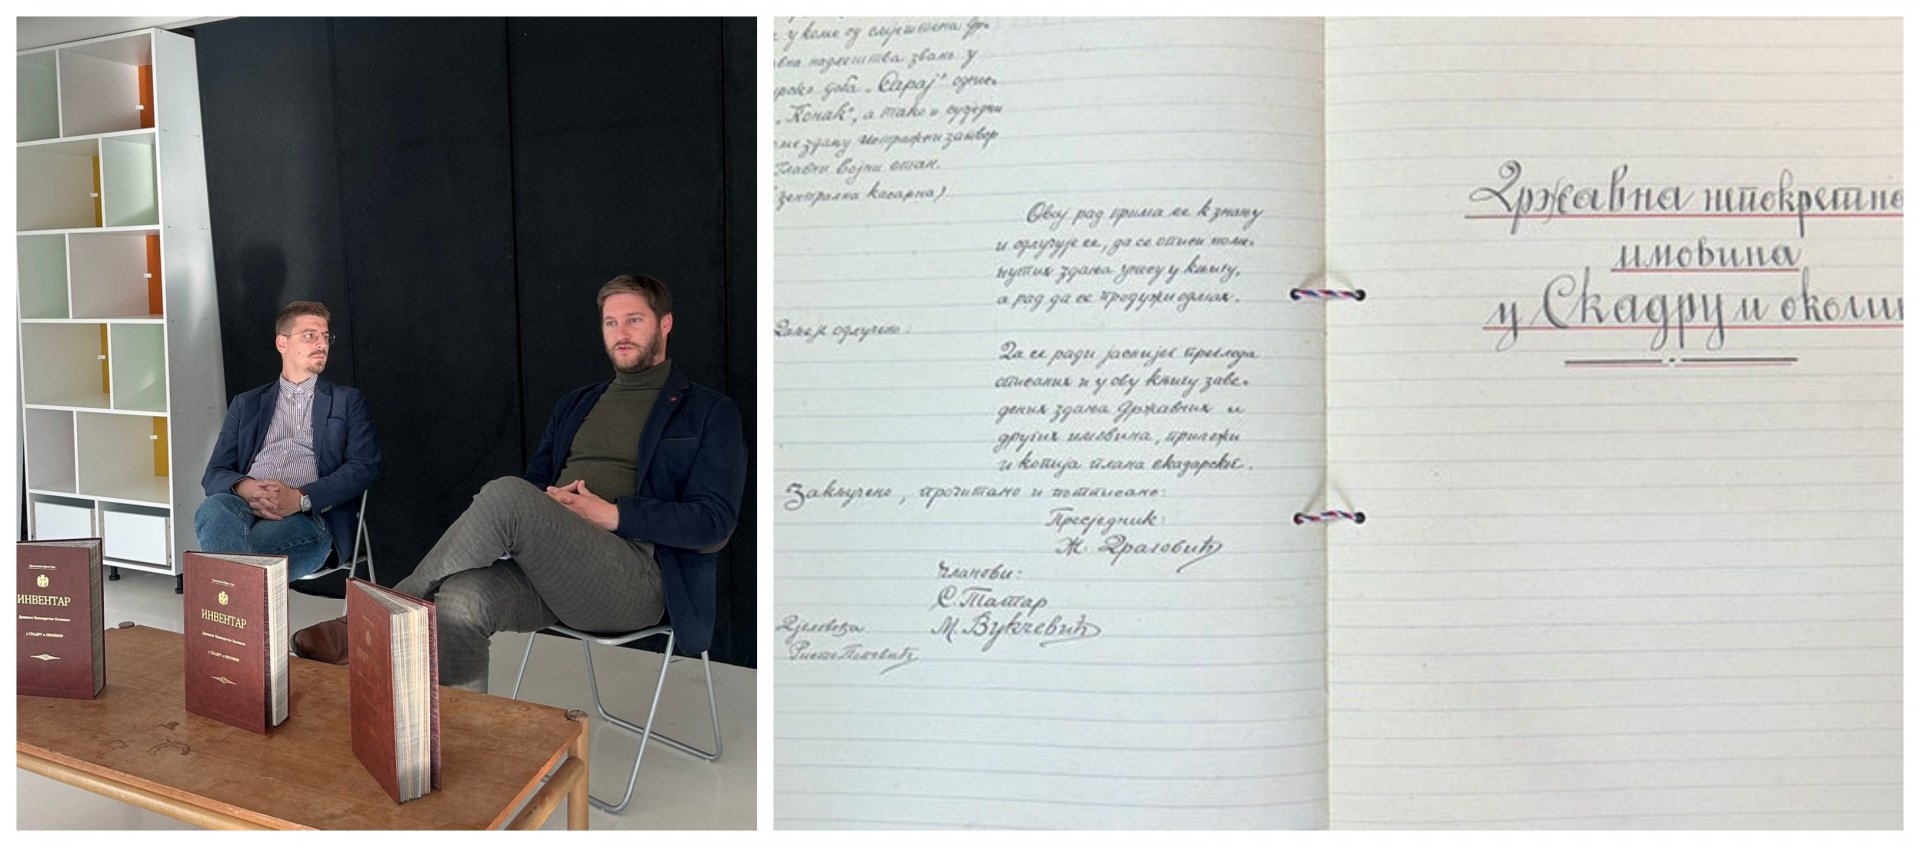 ИНВЕНТАР
Државне Непокретне Имовине
у СКАДРУ и ОКОЛИНИ
ИНВЕНТАР
Државне Непокретне Имовине
у СКАДРУ и ОКОЛИНИ
ИНВЕНТАР
у коме су смјештена др-
вна надлештва звано у
доба „Сарај“
„Конак“, а тако и сусједни
здању Истражни затвор
Главни војни стан
централна касарна)
Овај рад прима се к знању
и одлучује се, да се описи поме-
нутих здања унесу у књигу,
а рад да се продужи одмах.
Даље је одлучено:
Да се ради јаснијег прегледа
описаних и у ову књигу заве-
дених здања државних и
других имовина, приложи
и копија плана скадарског.
Закључено, прочитано и потписано:
Пресједник:
Ж. Драговић
Чланови:
С. Татар
М. Вукчевић
Дјеловођа
Ристо Поповић
Државна непокретно
имовина
у Скадру и околин